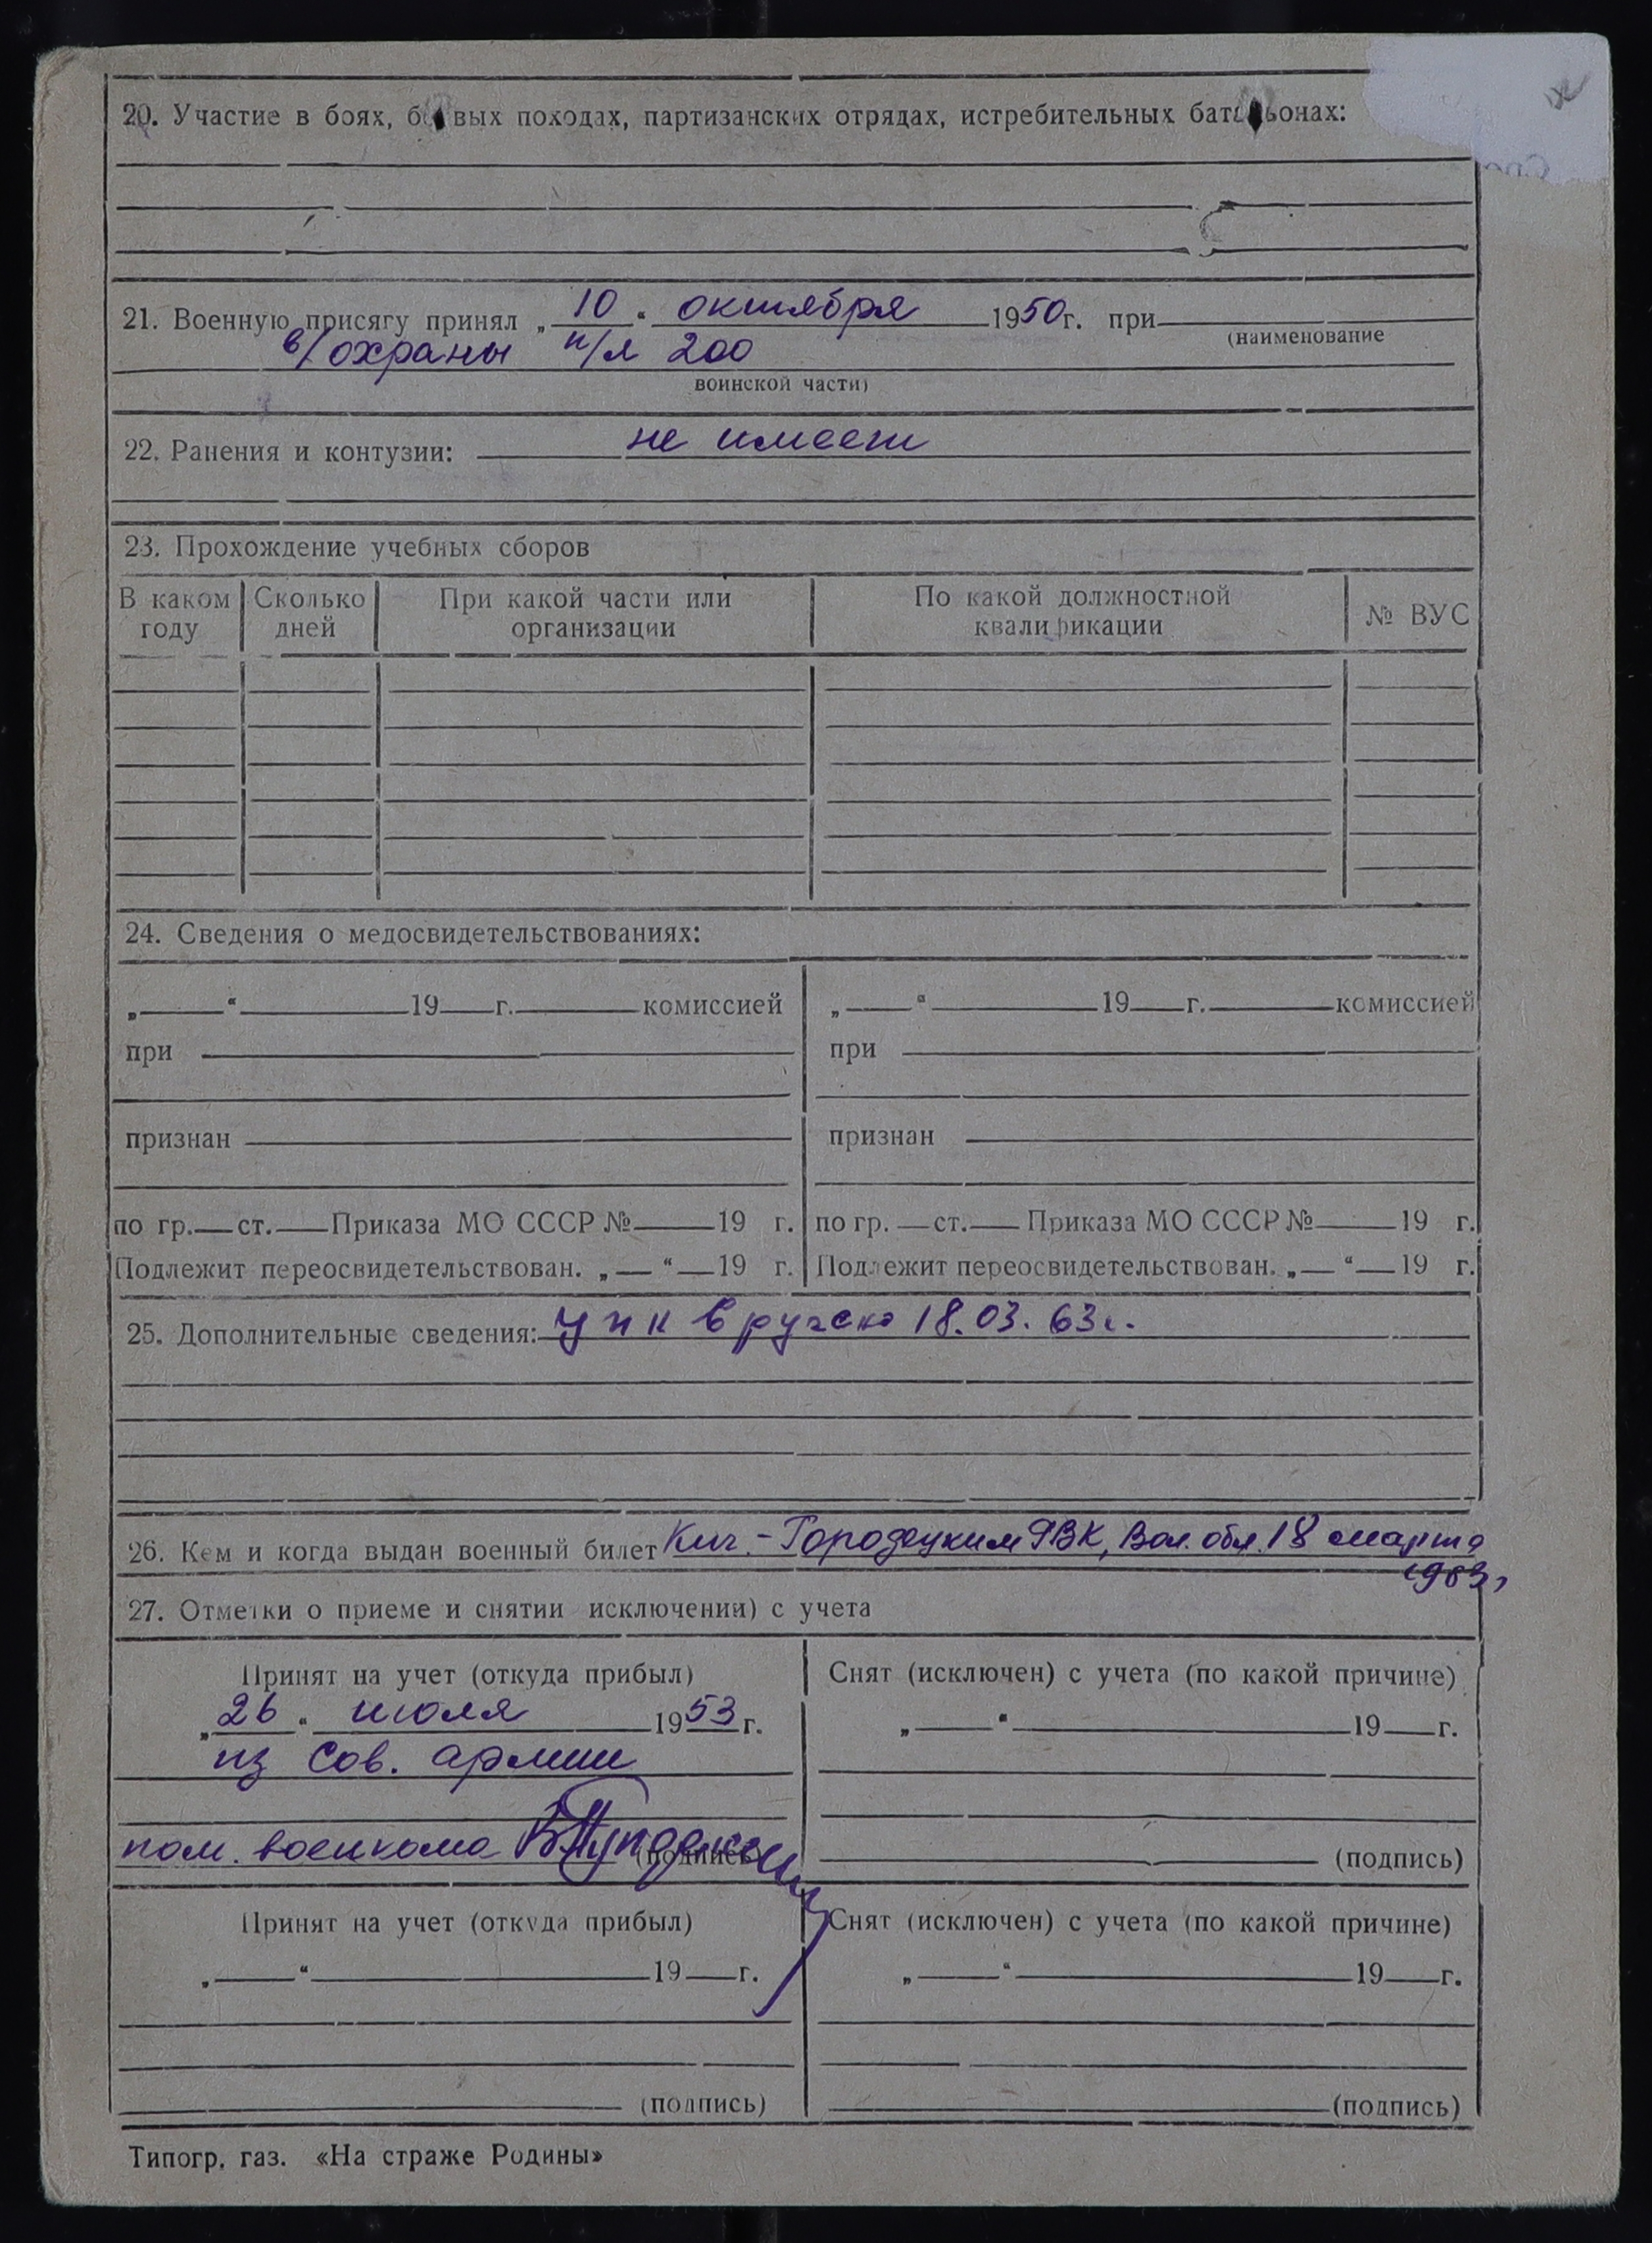 20. Участие в боях, б вых походах, партизанских отрядах, истребительных бат ьонах:
21. Военную присягу принял „ 10 “ октября 1950 г. при
(наименование
в/охраны п/л 200
воинской части)
22. Ранения и контузии: не имеет
23. Прохождение учебных сборов
В каком году Сколько дней При какой части или организации По какой должностной квалификации № ВУС
24. Сведения о медосвидетельствованиях:
„ “ 19 г. комиссией „ “ 19 г. комиссией
при при
признан признан
по гр. ст. Приказа МО СССР № 19 г. по гр. ст. Приказа МО СССР № 19 г.
Подлежит переосвидетельствован. „ “ 19 г. Подлежит переосвидетельствован. „ “ 19 г.
25. Дополнительные сведения: 18.03.63г.
26. Кем и когда выдан военный билет Кич.-Городецким РВК, Вол. обл. 18 марта
1963г
27. Отметки о приеме и снятии исключении) с учета
Принят на учет (откуда прибыл) Снят (исключен) с учета (по какой причине)
„ 26 “ июля 1953 г. „ “ 19 г.
из Сов. армии
пом. военкома (подпись) (подпись)
Принят на учет (откуда прибыл) Снят (исключен) с учета (по какой причине)
„ “ 19 г. „ “ 19 г.
(подпись) (подпись)
Типогр. газ. «На страже Родины»